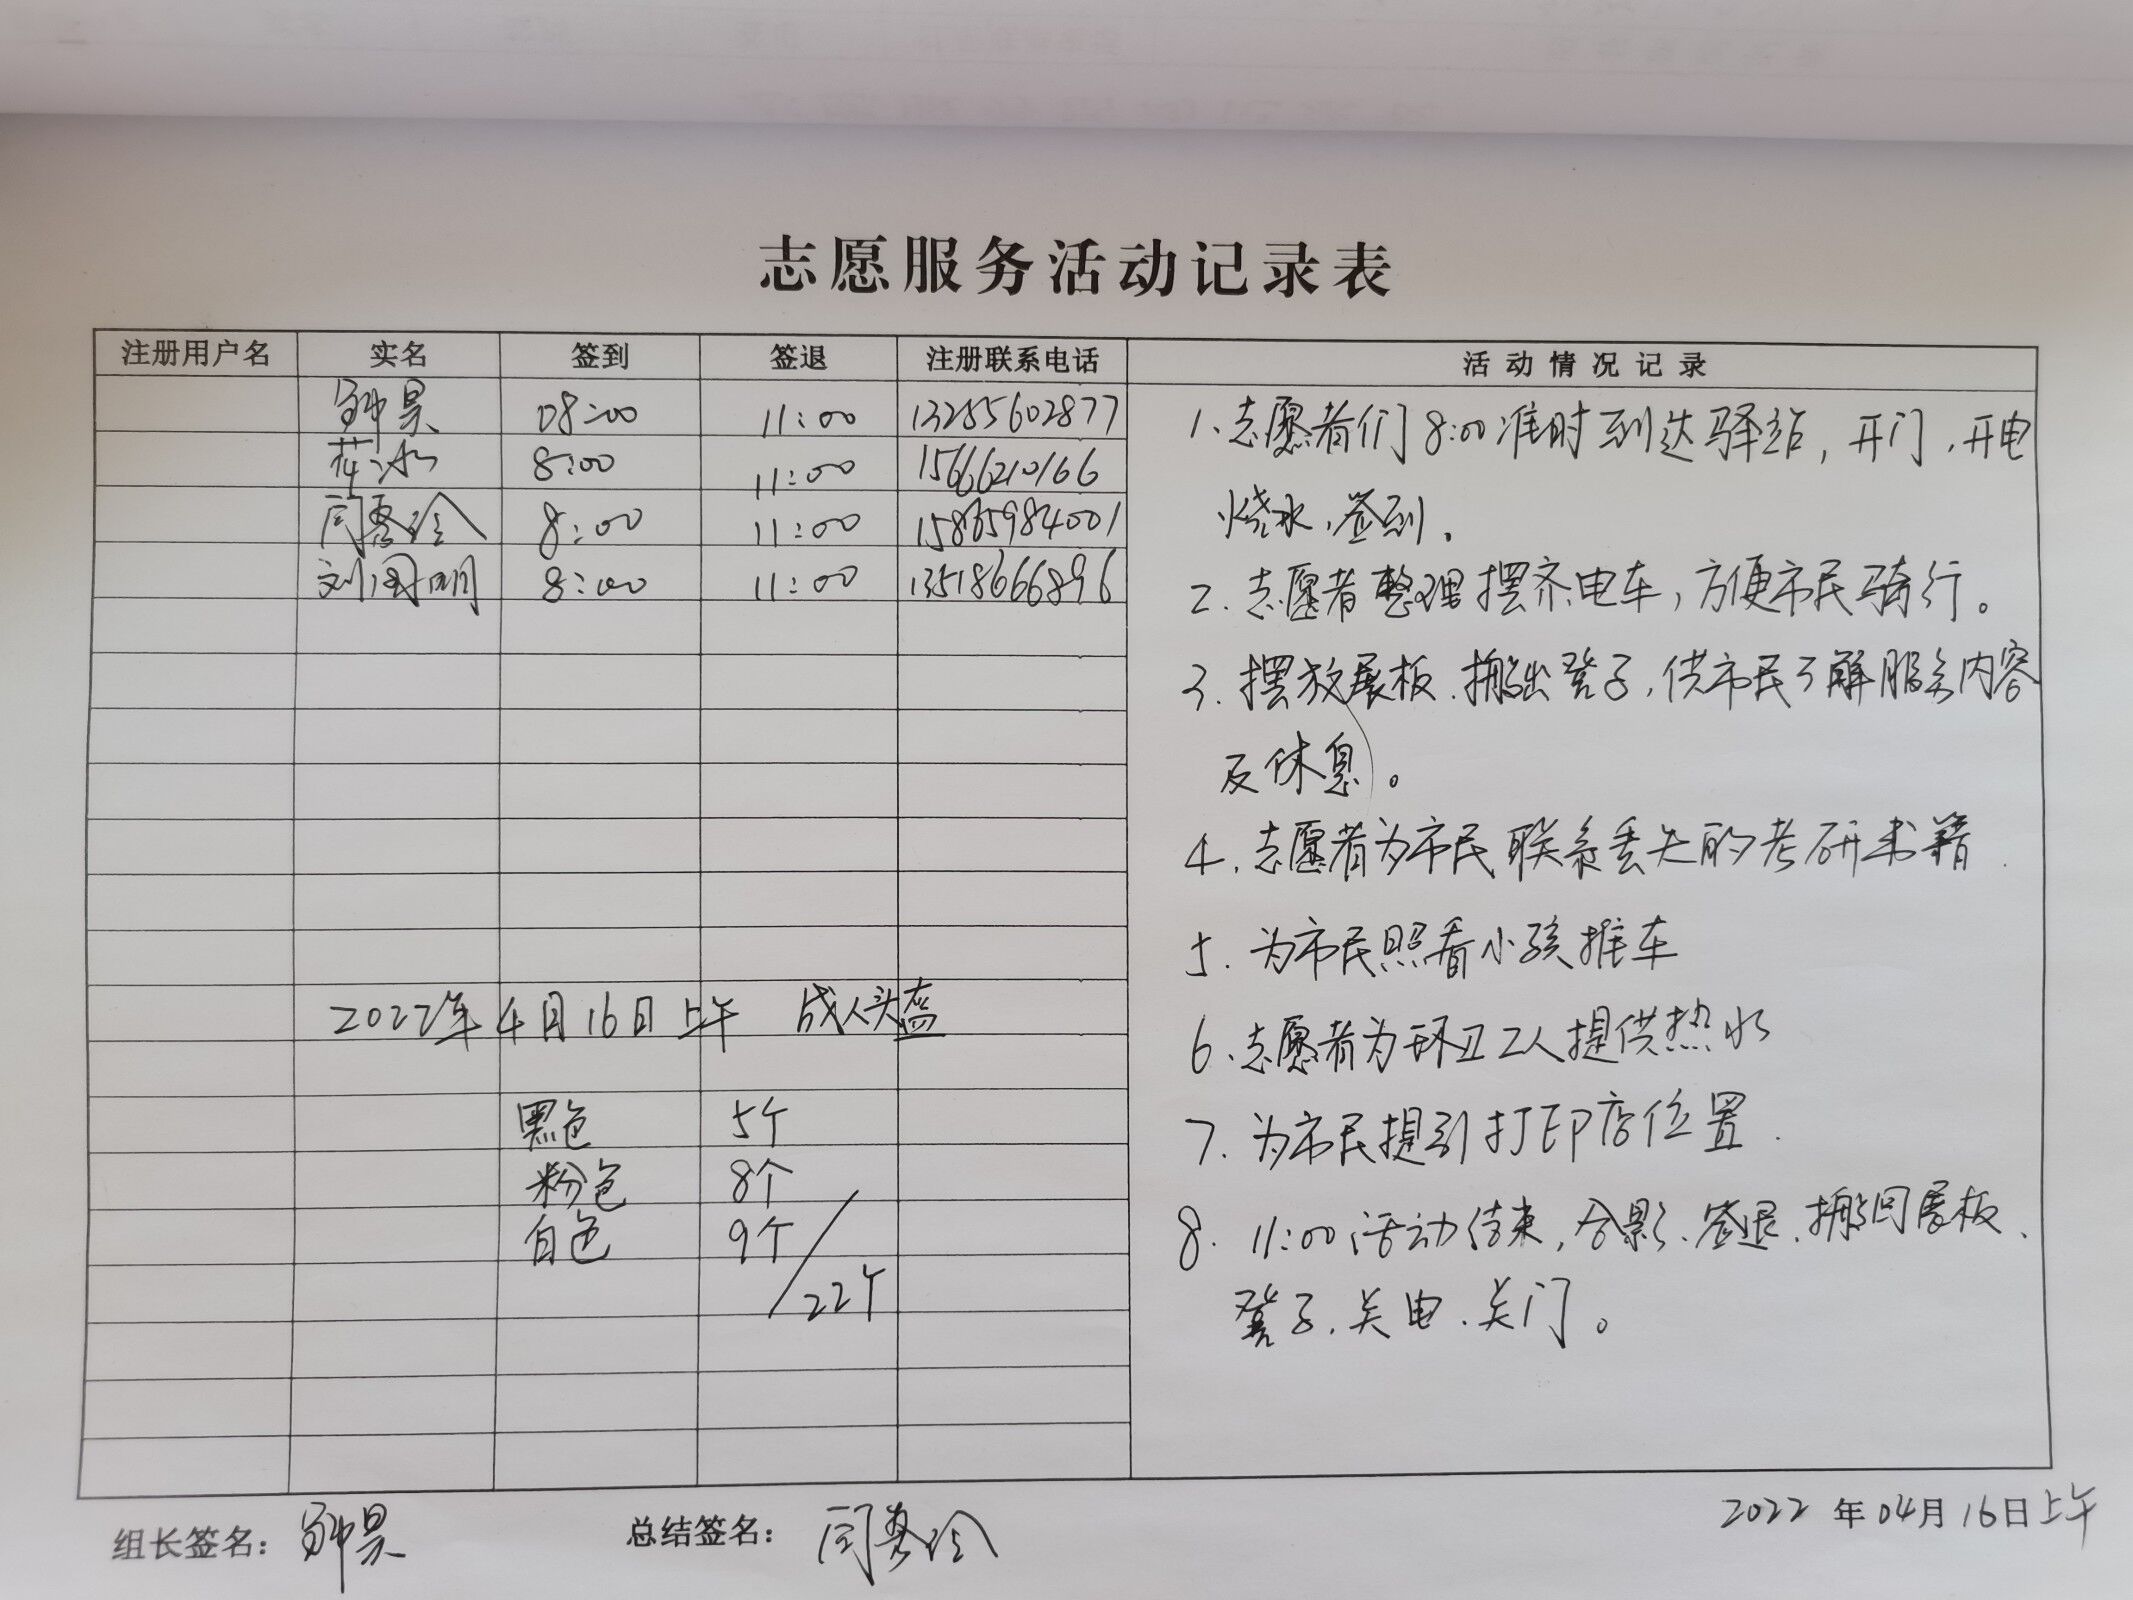 志愿服务活动记录表
注册用户名 实名 签到 签退 注册联系电话 活动情况记录
昊 08:00 11:00 13255602877
8:00 11:00 15666210166
闫春玲 8:00 11:00 15865984001
刘国明 8:00 11:00 13518666896
2022年4月16日上午 成人头盔
黑色 5个
粉色 8个
白色 9个
22个
1、志愿者们8:00准时到达驿站，开门、开电
烧水、签到。
2、志愿者整理摆齐电车，方便市民骑行。
3、摆放展板、搬出凳子，供市民了解服务内容
及休息。
4、志愿者为市民联系丢失的考研书籍
5、为市民照看小孩推车
6、志愿者为环卫工人提供热水
7、为市民提引打印店位置.
8、11:00活动结束，合影、签退、搬回展板、
凳子、关电、关门。
组长签名： 昊 总结签名： 闫春玲 2022年04月16日上午